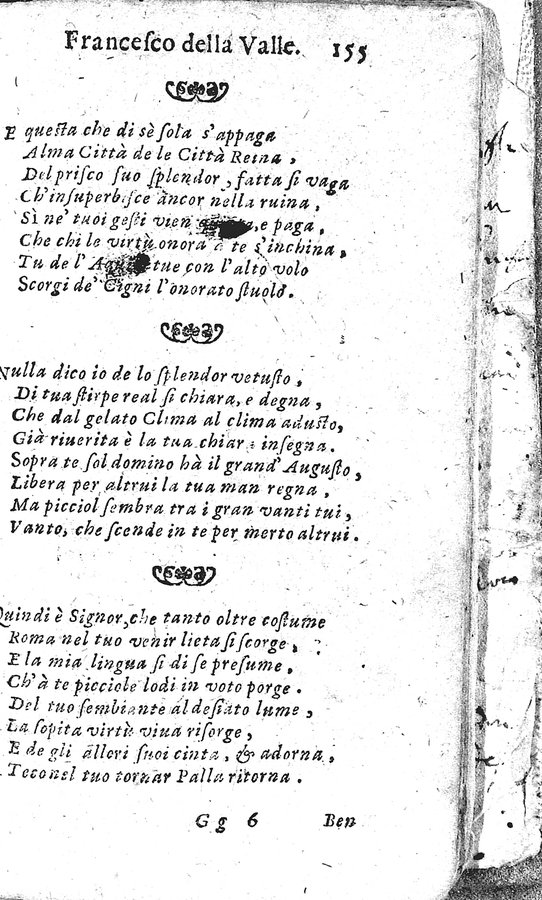 Francesco della Valle. 155
E questa che di sè sola s'appaga
Alma Città de le Città Reina,
Del prisco suo splendor, fatta si vaga
Ch'insuperbisce ancor nella ruina,
Sì ne' tuoi gesti vien e paga,
Che chi le virtù onora à te s'inchina,
Tu de l' tue con l'alto volo
Scorgi de' Cigni l'onorato stuolo.
Nulla dico io de lo splendor vetusto,
Di tua stirpe real si chiara, e degna,
Che dal gelato Clima al clima adusto,
Già riuerita è la tua chiara insegna.
Sopra te sol domino hà il grand' Augusto,
Libera per altrui la tua man regna,
Ma picciol sembra tra i gran vanti tui,
Vanto, che scende in te per merto altrui.
Quindi è Signor, che tanto oltre costume
Roma nel tuo venir lieta si scorge,
E la mia lingua si di se presume,
Ch'à te picciole lodi in voto porge.
Del tuo sembiante al desiato lume,
La sopita virtù viua risorge,
E de gli allori suoi cinta, & adorna,
Teco nel tuo tornar Palla ritorna.
G g 6 Ben